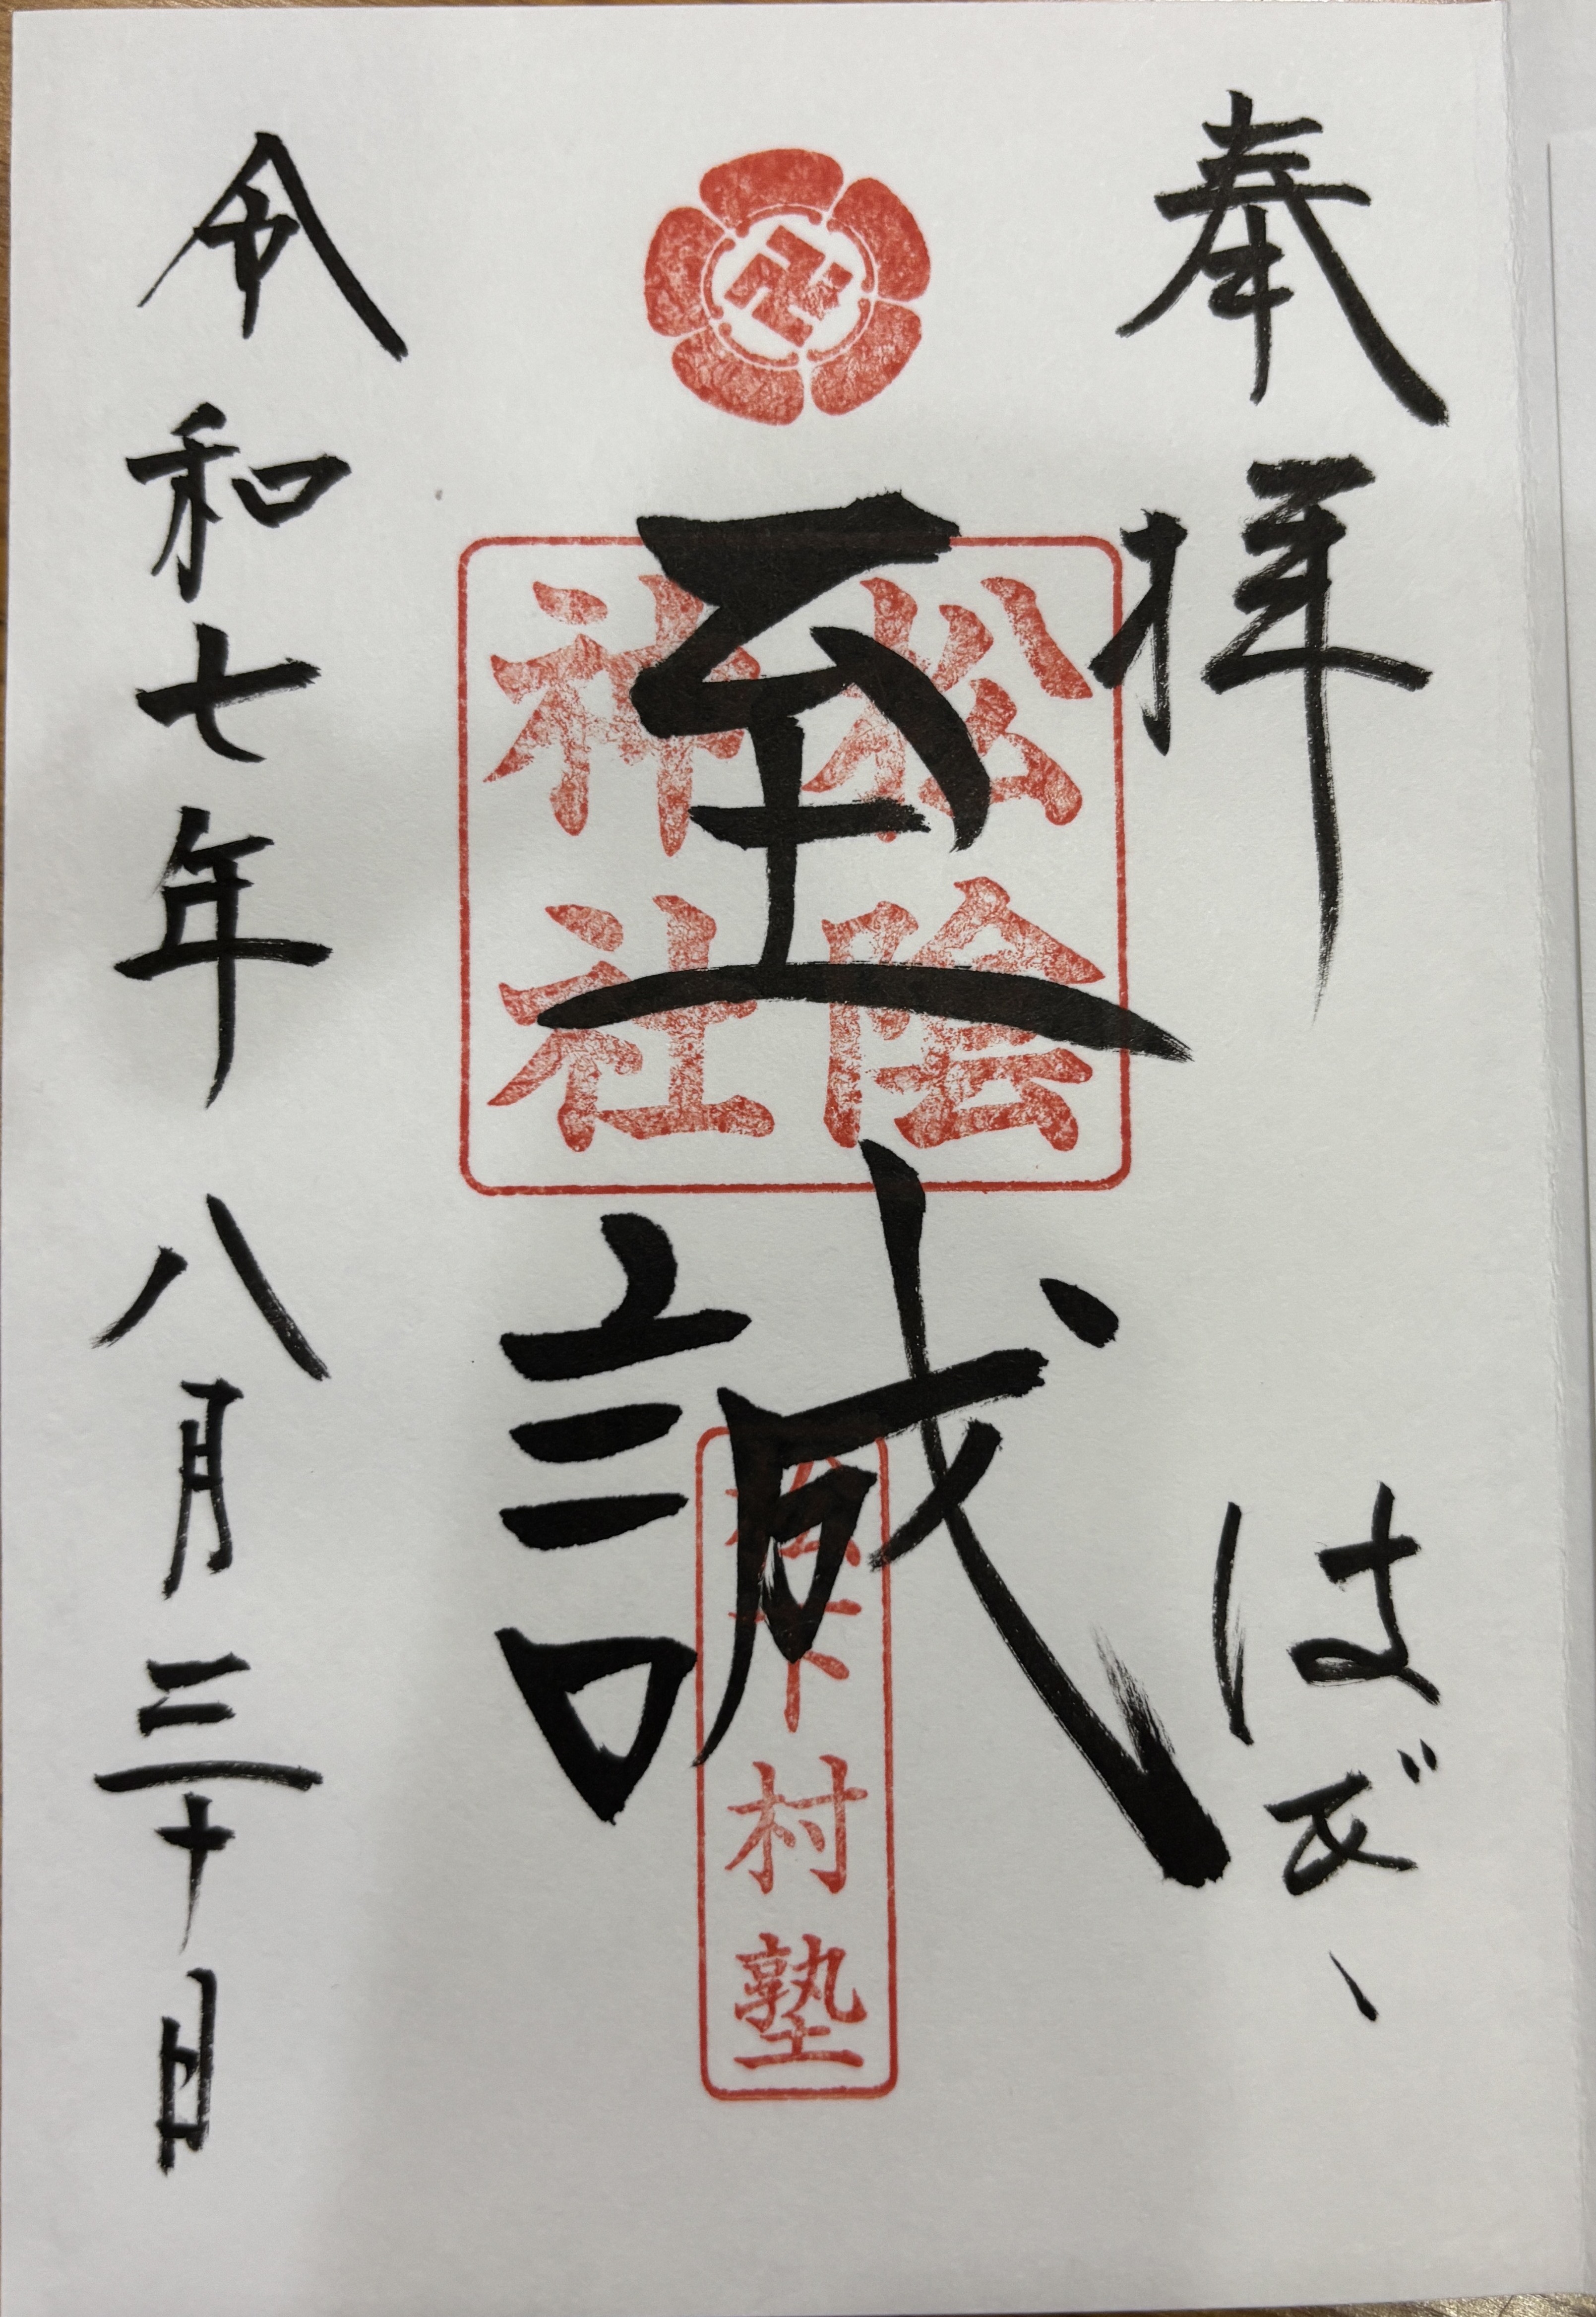 奉拝　はぎ
至誠
松陰
神社
松下村塾
令和七年八月三十日